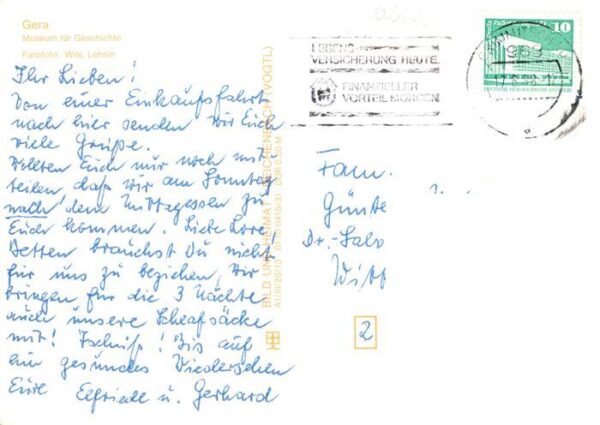 Gera
Museum für Geschichte
Farbfoto: Wils, Lehnin
Ihr Lieben!
Von einer Einkaufsfahrt
nach hier senden wir Euch
viele Grüße.
Wollten Euch nur noch mit-
teilen daß wir am Sonntag
nach dem Mittagessen zu
Euch kommen. Liebe Lore
Betten brauchst Du nicht
für uns zu beziehen, wir
bringen für die 3 Nächte
auch unsere Schlafsäcke
mit! Tschüß! Bis auf
ein gesundes Wiedersehen
Eure Elfriede u. Gerhard
BILD UND HEIMAT REICHENBACH (VOGTL)
LEBENS-
VERSICHERUNG HEUTE,
FINANZIELLER
VORTEIL MORGEN
10
DEUTSCHE DEMOKRATISCHE REPUBLIK
Fam.
Günte
Dr.-Salv
Witt
2